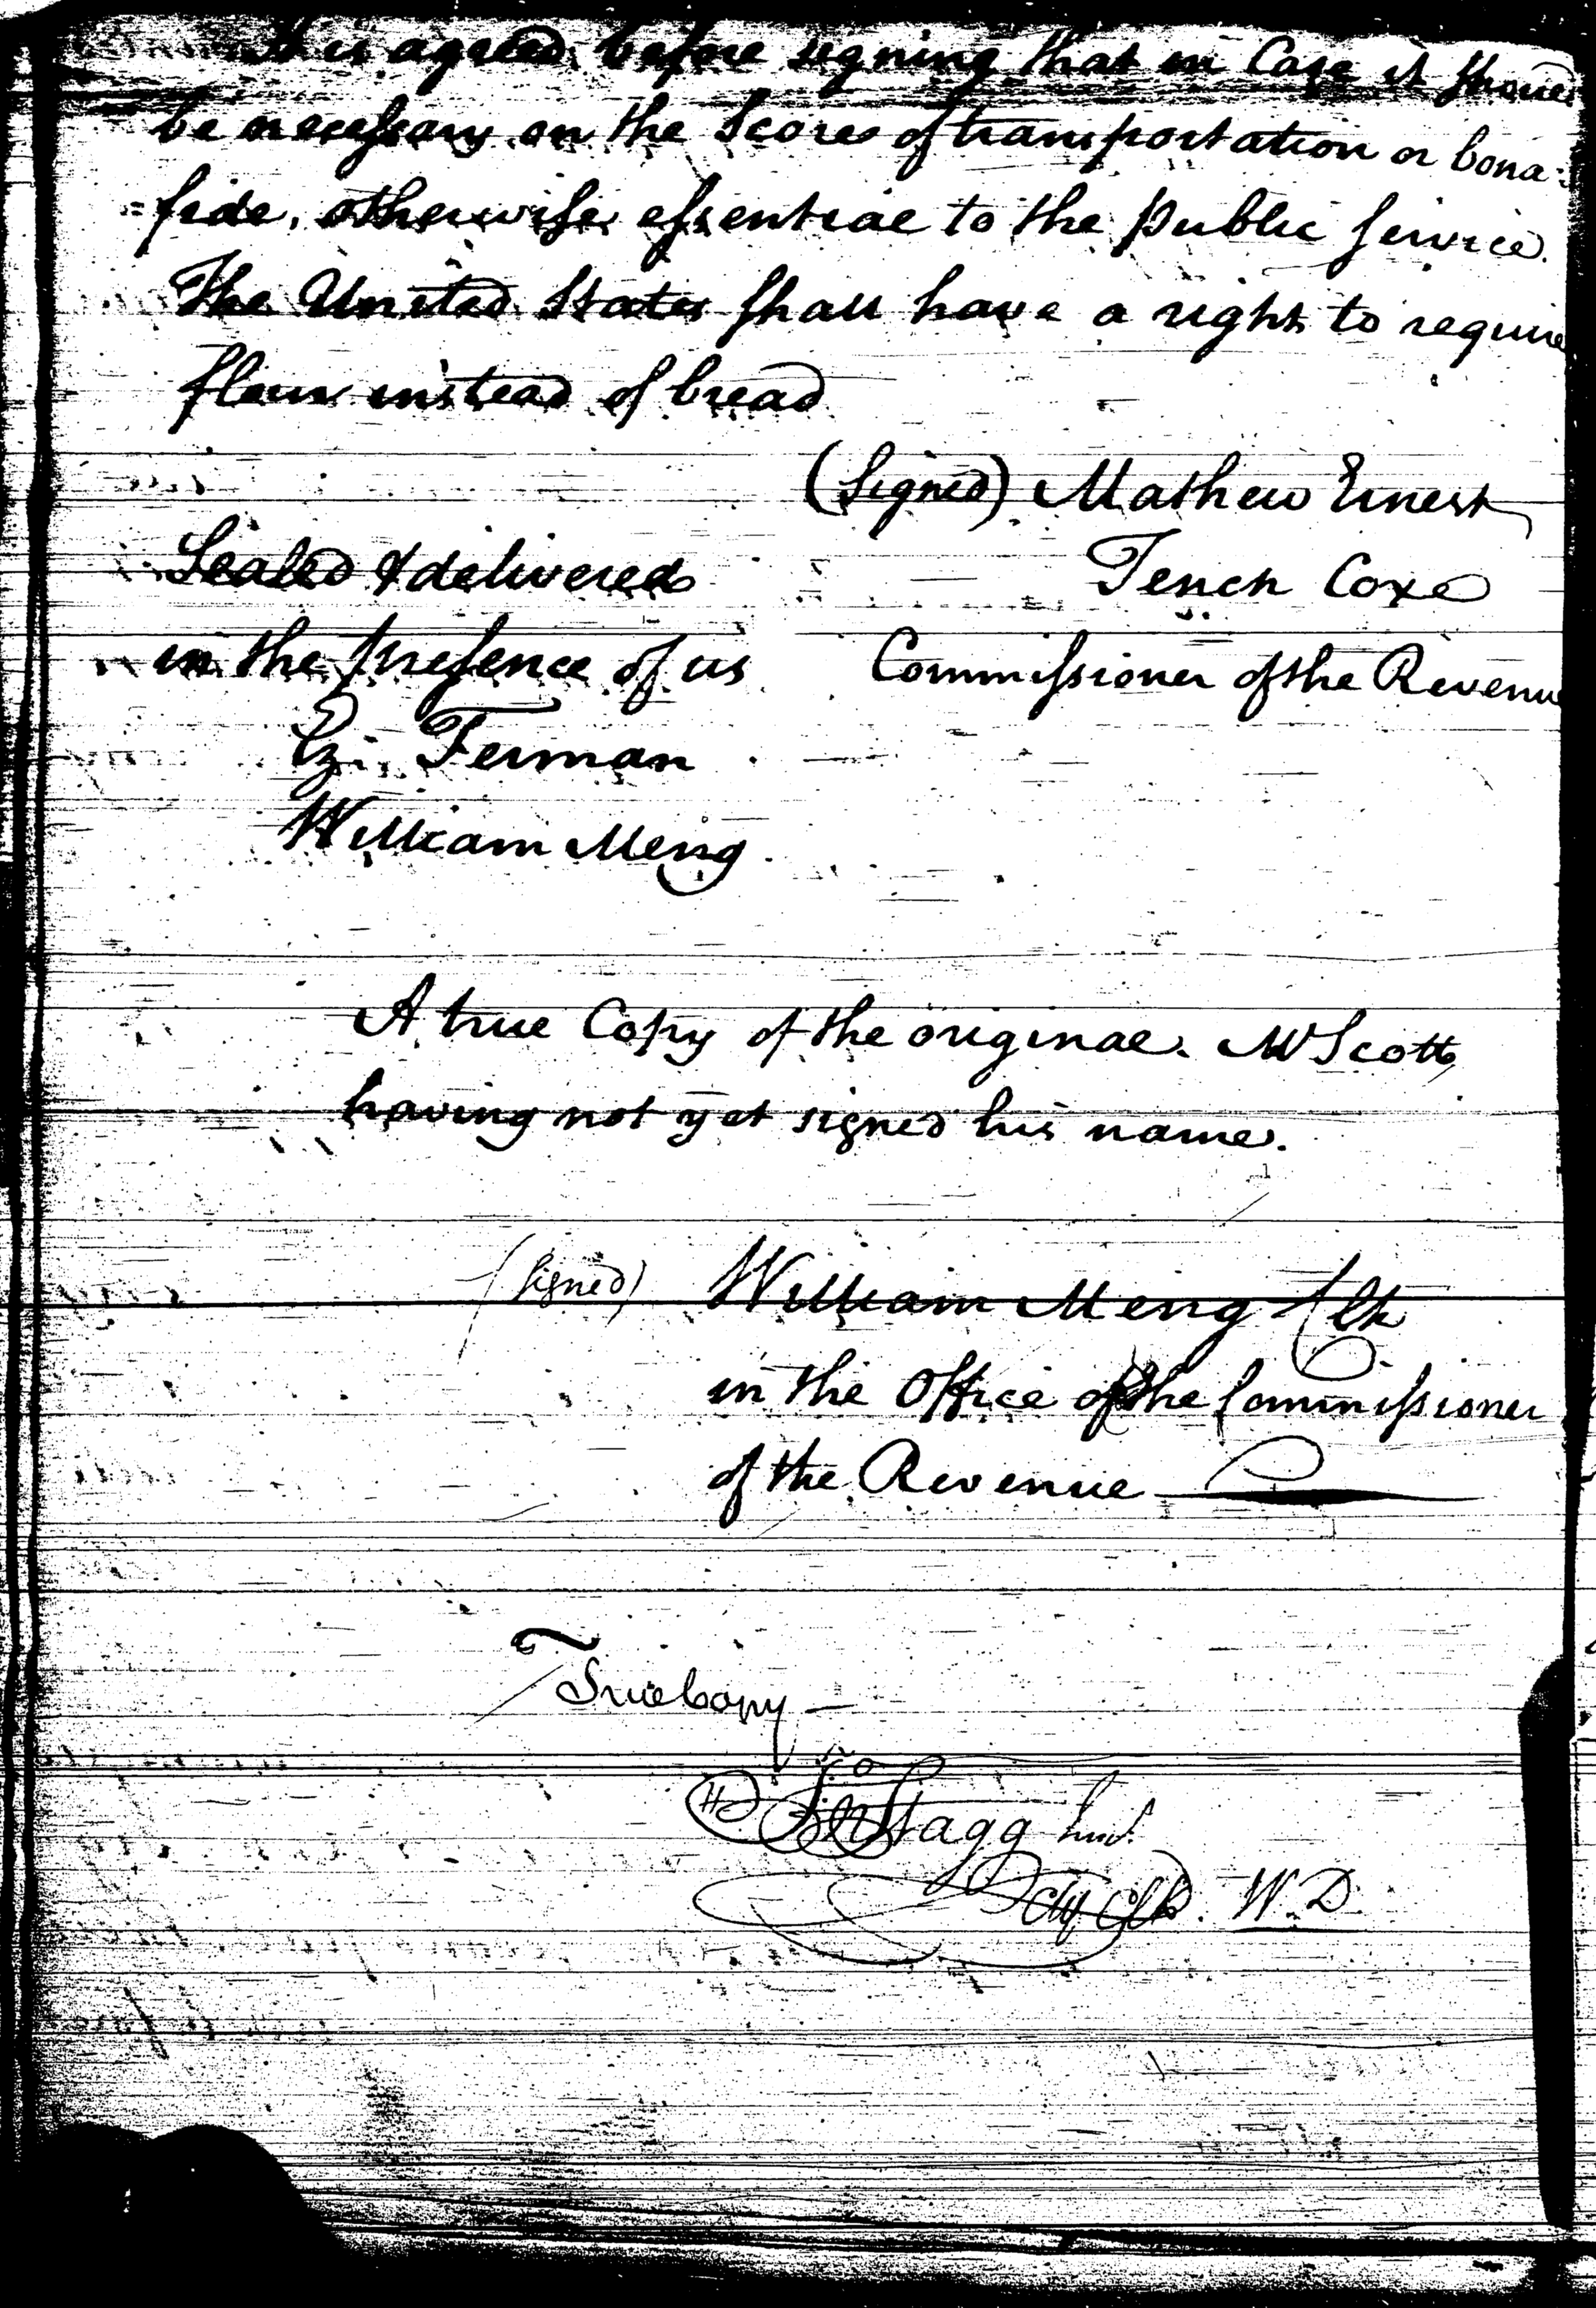 It is agreed before signing that in Case it should
be necessary on the Scores of transportation or bona-
=fide, otherwise essential to the public service.
The United States shall have a right to require
flour instead of bread
(Signed) Mathew Ernest
Sealed & delivered
Tench Coxe
in the presence of us
Commissioner of the Revenue
Ez. Ferman
William Meng.
A true Copy of the original. W Scott
having not yet signed his name.
(Signed) William Meng Clk
in the Office of the Commissioner
of the Revenue
True Copy
Jno Stagg Junr.
Chf Clk. W.D.